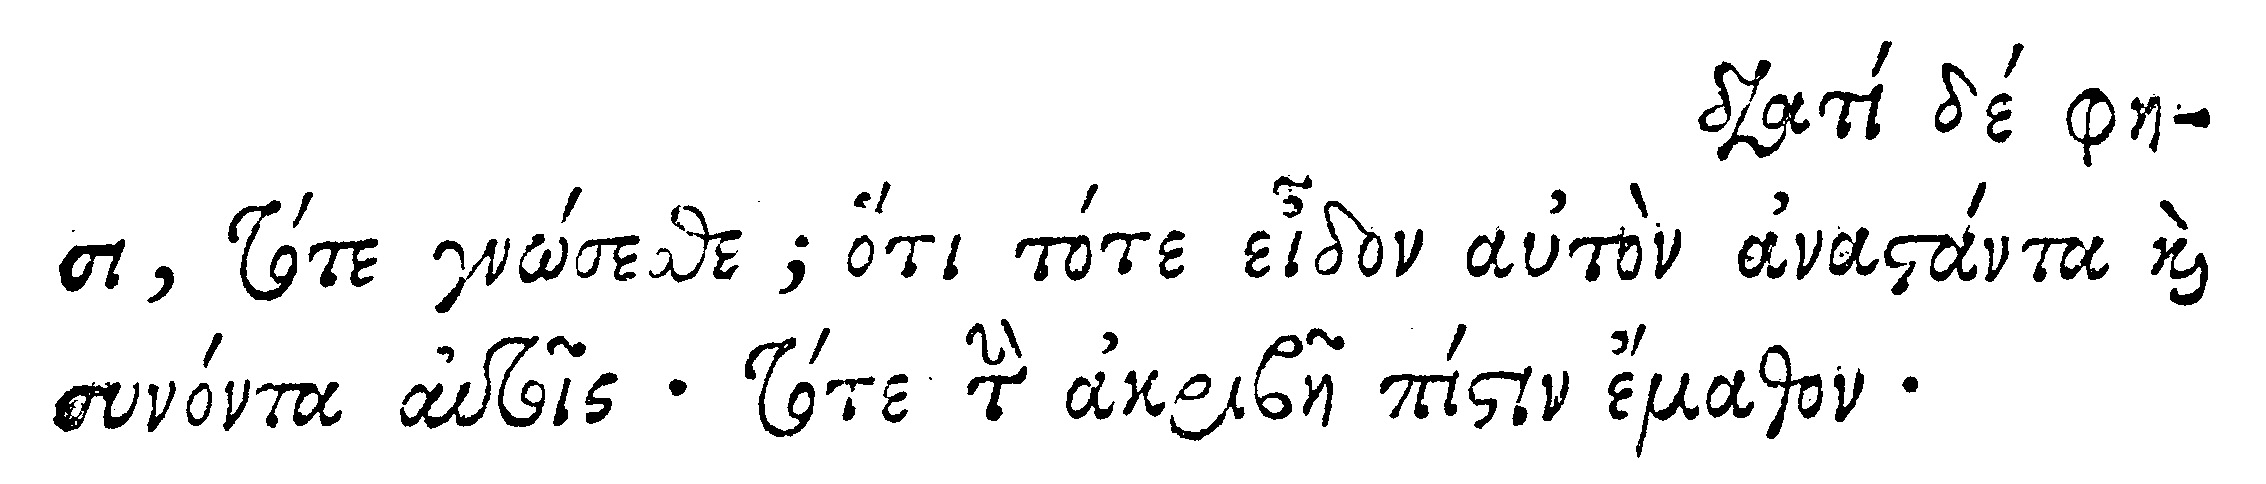 διατί δέ φη-
σι, τότε γνώσεσθε; ὅτι τότε εἶδον αὐτὸν ἀναστάντα καὶ
συνόντα αὐτοῖς. τότε τὴν ἀκριβῆ πίστιν ἔμαθον.